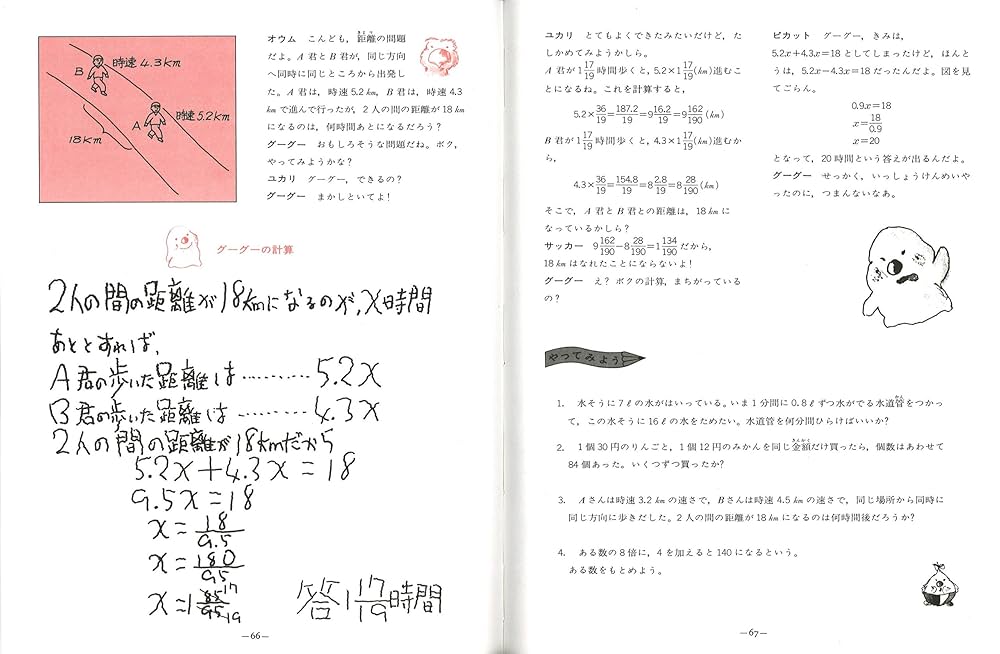 B
時速4.3km
時速5.2km
A
18km
オウム　こんども，距離の問題
だよ。A君とB君が，同じ方向
へ同時に同じところから出発し
た。A君は，時速5.2km，B君は，時速4.3
kmで進んで行ったが，2人の間の距離が18km
になるのは，何時間あとになるだろう？
グーグー　おもしろそうな問題だね。ボク，
やってみようかな？
ユカリ　グーグー，できるの？
グーグー　まかしといてよ！
グーグーの計算
2人の間の距離が18kmになるのが,x時間
あととすれば,
A君の歩いた距離は………5.2x
B君の歩いた距離は………4.3x
2人の間の距離が18kmだから
5.2x+4.3x=18
9.5x=18
x=18/9.5
x=180/95
x=1 85/95 17/19
答 1 17/19 時間
—66—
ユカリ　とてもよくできたみたいだけど，た
しかめてみようかしら。
A君が1 17/19時間歩くと，5.2×1 17/19(km)進むこ
とになるね。これを計算すると，
5.2×36/19=187.2/19=9 16.2/19=9 162/190(km)
B君が1 17/19時間歩くと，4.3×1 17/19(km)進むか
ら，
4.3×36/19=154.8/19=8 2.8/19=8 28/190(km)
そこで，A君とB君との距離は，18kmに
なっているかしら？
サッカー　9 162/190−8 28/190=1 134/190だから，
18kmはなれたことにならないよ！
グーグー　え？ボクの計算，まちがっている
の？
ピカット　グーグー，きみは，
5.2x+4.3x=18としてしまったけど，ほんと
うは，5.2x−4.3x=18だったんだよ。図を見
てごらん。
0.9x=18
x=18/0.9
x=20
となって，20時間という答えが出るんだよ。
グーグー　せっかく，いっしょうけんめいや
ったのに，つまんないなあ。
やってみよう
1.　水そうに7ℓの水がはいっている。いま1分間に0.8ℓずつ水がでる水道管をつかっ
て，この水そうに16ℓの水をためたい。水道管を何分間ひらけばいいか？
2.　1個30円のりんごと，1個12円のみかんを同じ金額だけ買ったら，個数はあわせて
84個あった。いくつずつ買ったか？
3.　Aさんは時速3.2kmの速さで，Bさんは時速4.5kmの速さで，同じ場所から同時に
同じ方向に歩きだした。2人の間の距離が18kmになるのは何時間後だろうか？
4.　ある数の8倍に，4を加えると140になるという。
ある数をもとめよう。
—67—